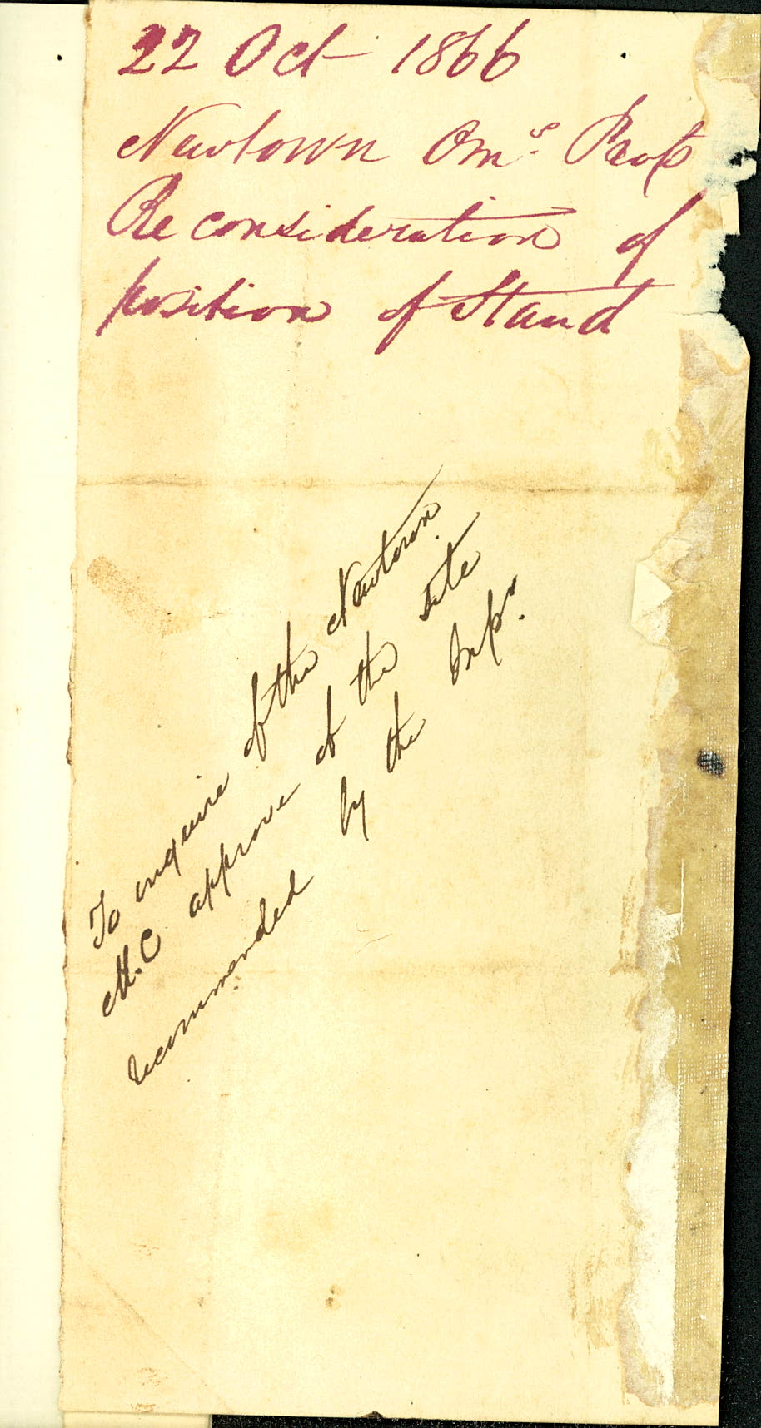 22 Oct 1866
Newtown Oms.
Reconsideration of
position of Stand
To inquire if the Newtown
M.C approve of the site
recommended by the Inspr.